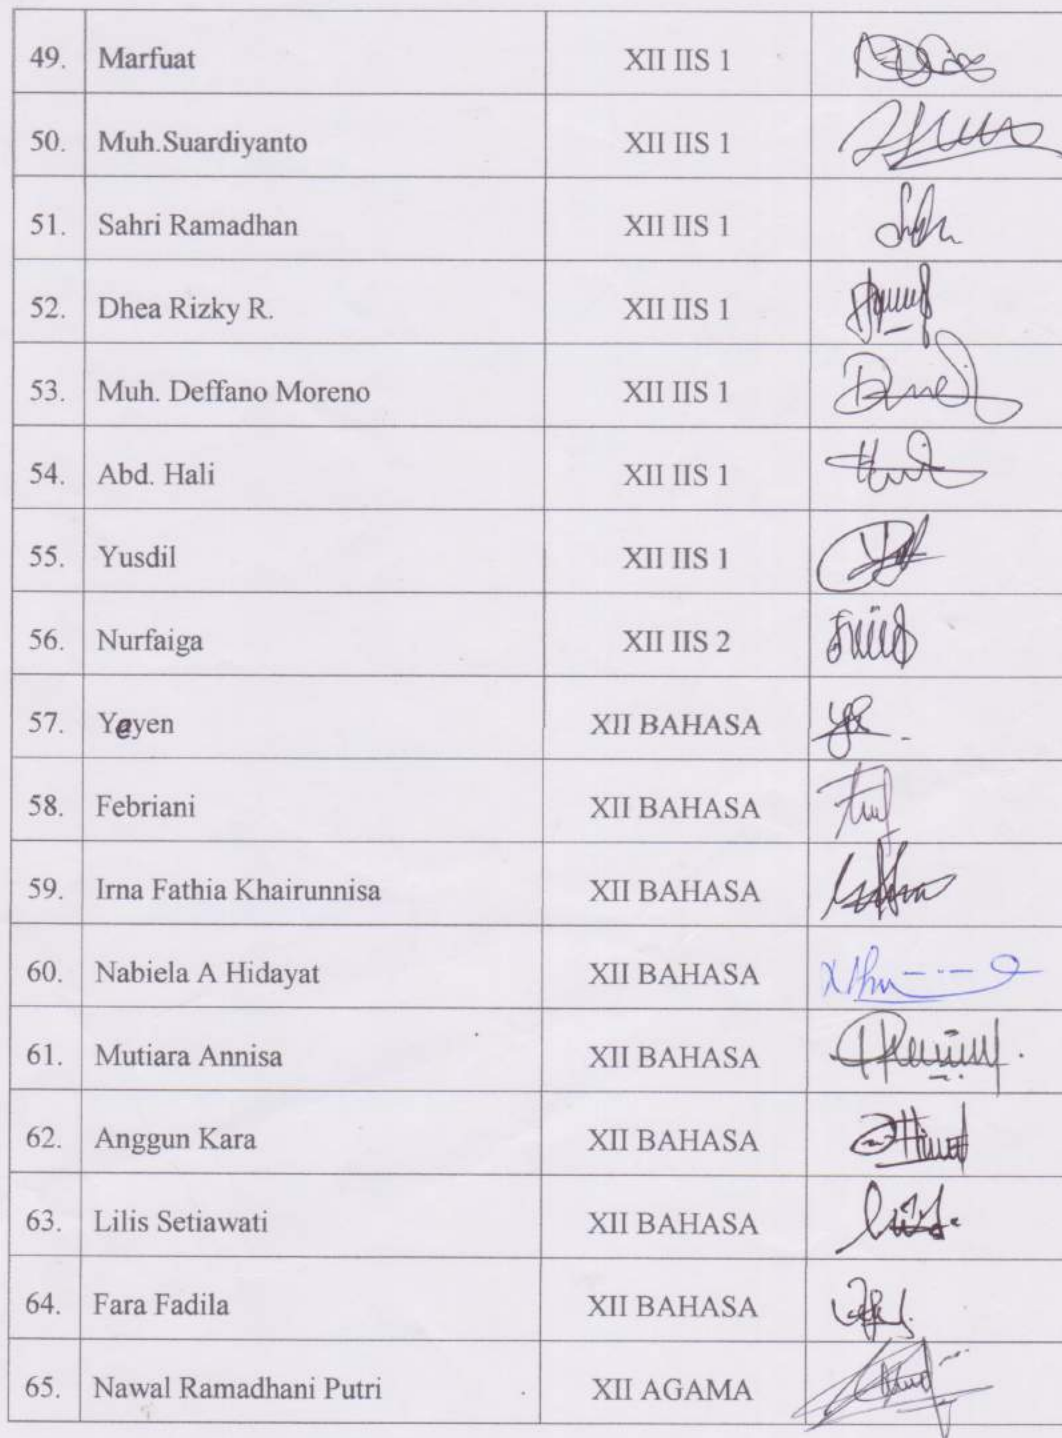 49. Marfuat XII IIS 1
50. Muh.Suardiyanto XII IIS 1
51. Sahri Ramadhan XII IIS 1
52. Dhea Rizky R. XII IIS 1
53. Muh. Deffano Moreno XII IIS 1
54. Abd. Hali XII IIS 1
55. Yusdil XII IIS 1
56. Nurfaiga XII IIS 2
57. Yayen XII BAHASA
58. Febriani XII BAHASA
59. Irna Fathia Khairunnisa XII BAHASA
60. Nabiela A Hidayat XII BAHASA
61. Mutiara Annisa XII BAHASA
62. Anggun Kara XII BAHASA
63. Lilis Setiawati XII BAHASA
64. Fara Fadila XII BAHASA
65. Nawal Ramadhani Putri XII AGAMA